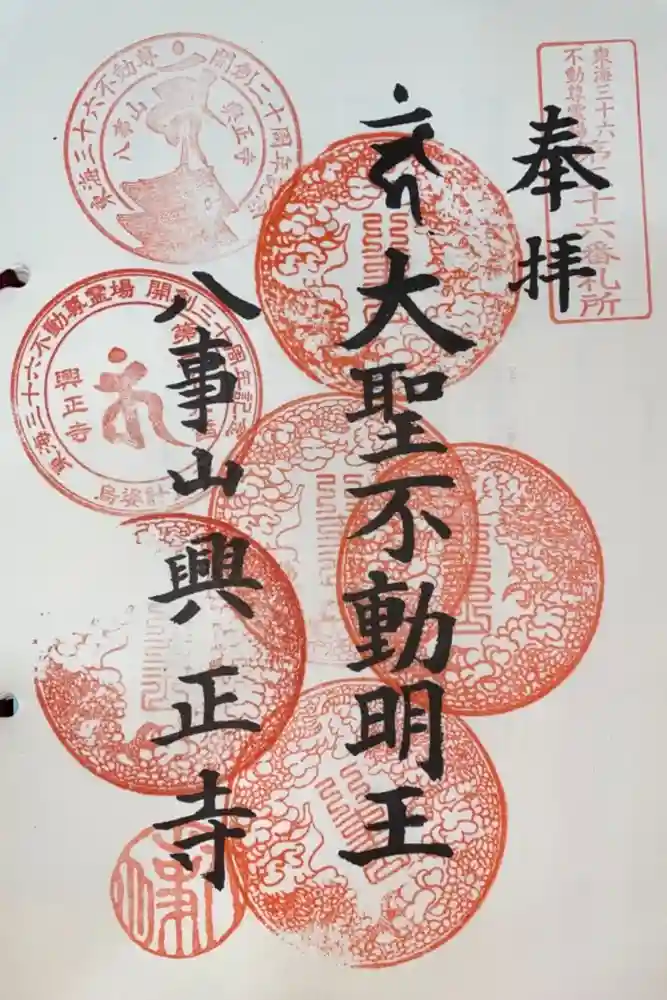 奉拝
東海三十六
不動尊霊場
第十六番札所
大聖不動明王
八事山興正寺
東海三十六不動尊
開創二十周年記念
八事山
興正寺
東海三十六不動尊霊場 開創三十周年記念
興正寺